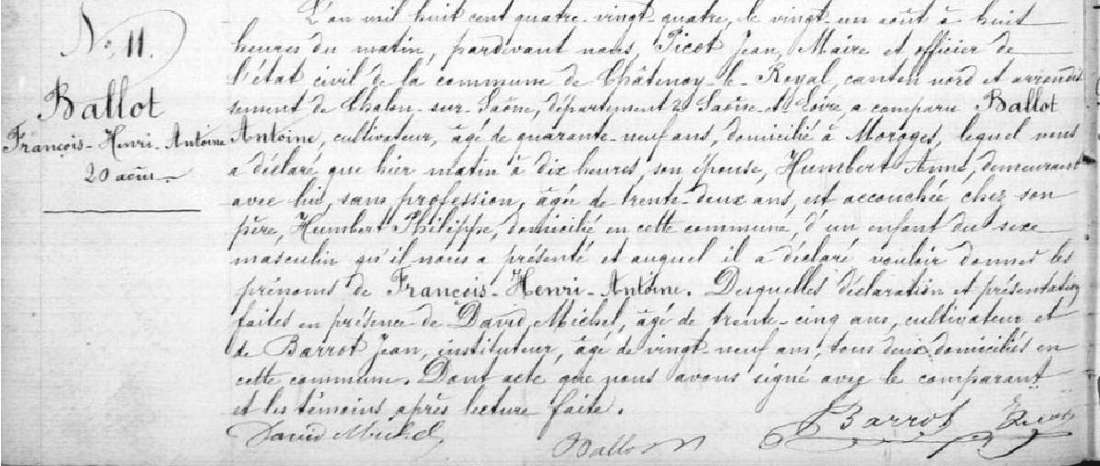 N° 11.
Ballot
François-Henri-Antoine
20 août
L'an mil huit cent quatre-vingt-quatre, le vingt-un août à huit
heures du matin, pardevant nous, Picot Jean, Maire et officier de
l'état civil de la commune de Châtenoy-le-Royal, canton nord et arrondis
sement de Chalon-sur-Saône, département de Saône-et-Loire, a comparu Ballot
Antoine, cultivateur, âgé de quarante-neuf ans, domicilié à Moroges, lequel nous
a déclaré que hier matin à dix heures, son épouse, Humbert Anne, demeurant
avec lui, sans profession, âgée de trente-deux ans, est accouchée chez son
père, Humbert Philippe, domicilié en cette commune, d'un enfant du sexe
masculin qu'il nous a présenté et auquel il a déclaré vouloir donner les
prénoms de François-Henri-Antoine. Desquelles déclaration et présentation
faites en présence de David Michel, âgé de trente-cinq ans, cultivateur et
de Barrot Jean, instituteur, âgé de vingt-neuf ans, tous deux domiciliés en
cette commune. Dont acte que nous avons signé avec le comparant
et les témoins après lecture faite.
David Michel Ballot Barrot Picot